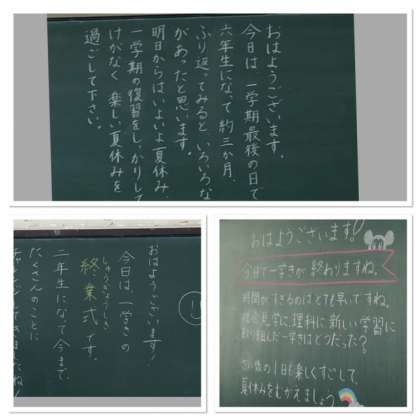 おはようございます。
今日は、一学期最後の日です
六年生になって約三か月、
ふり返ってみるといろいろな
があったと思います。
明日からはいよいよ夏休み、
一学期の復習をしっかりして
けがなく、楽しい夏休みを
過ごして下さい。
おはようございます!
今日は一学きの
しゅうぎょうしき
終業式です。
二年生になって今まで、
たくさんのことに
おはようございます!
今日で一学きが終わりますね。
時間がすぎるのはとても早いですね。
社会見学に、理科に新しい学習に
取り組んだ一学きはどうだった?
さい後の1日も楽しくすごして、
夏休みをむかえましょう